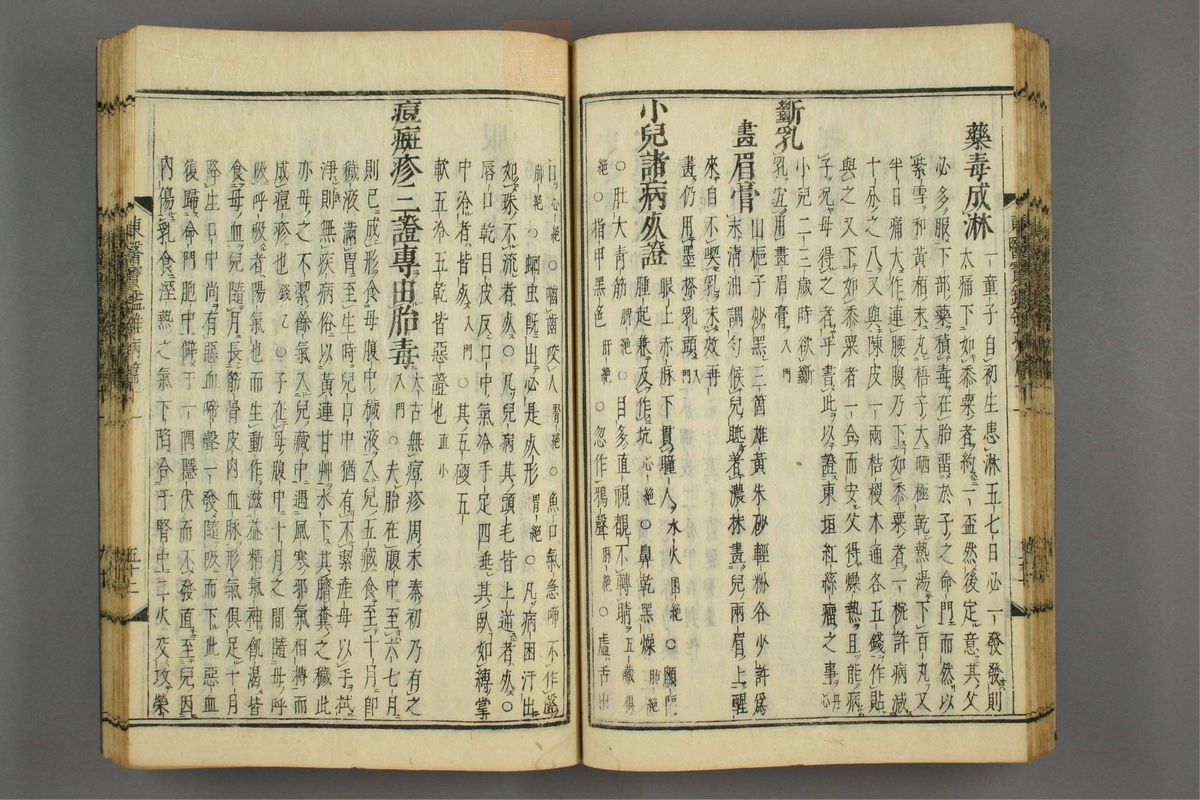 藥毒成淋
一童子自初生患淋五七日必一發發則
大痛下如黍粟者約一盃然後定意其父
必多服下部藥積毒在胎留於子之命門而然以
紫雪和黃栢末丸梧子大晒極乾熱湯下百丸又
半日痛大作連腰腹乃下如黍粟者一椀許病減
十分之八又與陳皮一兩桔梗木通各五錢作一貼
與之又下如黍粟者一合而安父得燥熱且能病
子况母得之者乎書此以證東垣紅絲瘤之事丹心
斷乳
小兒二三歲時欲斷
乳宜用畫眉膏入門
畫眉膏
山梔子炒黑三箇雄黃朱砂輕粉各少許爲
末淸油調勻候兒睡着濃抹畫兒兩眉上醒
來自不喫乳未效再
畫仍用墨搽乳頭入門
小兒諸病死證
眼上赤脉下貫瞳人水火困絶○顖門
腫起兼及作坑心絶○鼻乾黑燥肺絶
○肚大靑筋脾絶○目多直視覩不轉睛五藏俱
絶○指甲黑色肝絶○忽作鴉聲肺絶○虛舌出
口心絶○嚙齒咬人腎絶○魚口氣急啼不作聲
肺絶○蛔虫旣出必是死形胃絶○凡病困汗出
如珠不流者死○凡兒病其頭毛皆上逆者死○
唇口乾目皮反口中氣冷手足四垂其臥如縛掌
中冷者皆死入門○其五硬五
軟五冷五乾皆惡證也直小
痘癍疹三證專出胎毒
太古無痘疹周末秦初乃有之
入門○夫胎在腹中至六七月
則已成形食母腹中穢液入兒五藏食至十月卽
穢液滿胃至生時兒口中猶有不潔産母以手拭
淨則無疾病俗以黃連甘艸水下其臍糞之穢此
亦母之不潔餘氣入兒藏中遇風寒邪氣相搏而
成痘疹也錢乙○子在母腹中十月之間隨母呼
吸呼吸者陽氣也而生動作滋益精氣神飢渴皆
食母血兒隨月長筋骨皮肉血脉形氣俱足十月
降生口中尚有惡血啼聲一發隨吸而下此惡血
復歸命門胞中僻于一隅隱伏而不發直至兒因
內傷乳食濕熱之氣下陷合于腎中二火交攻榮